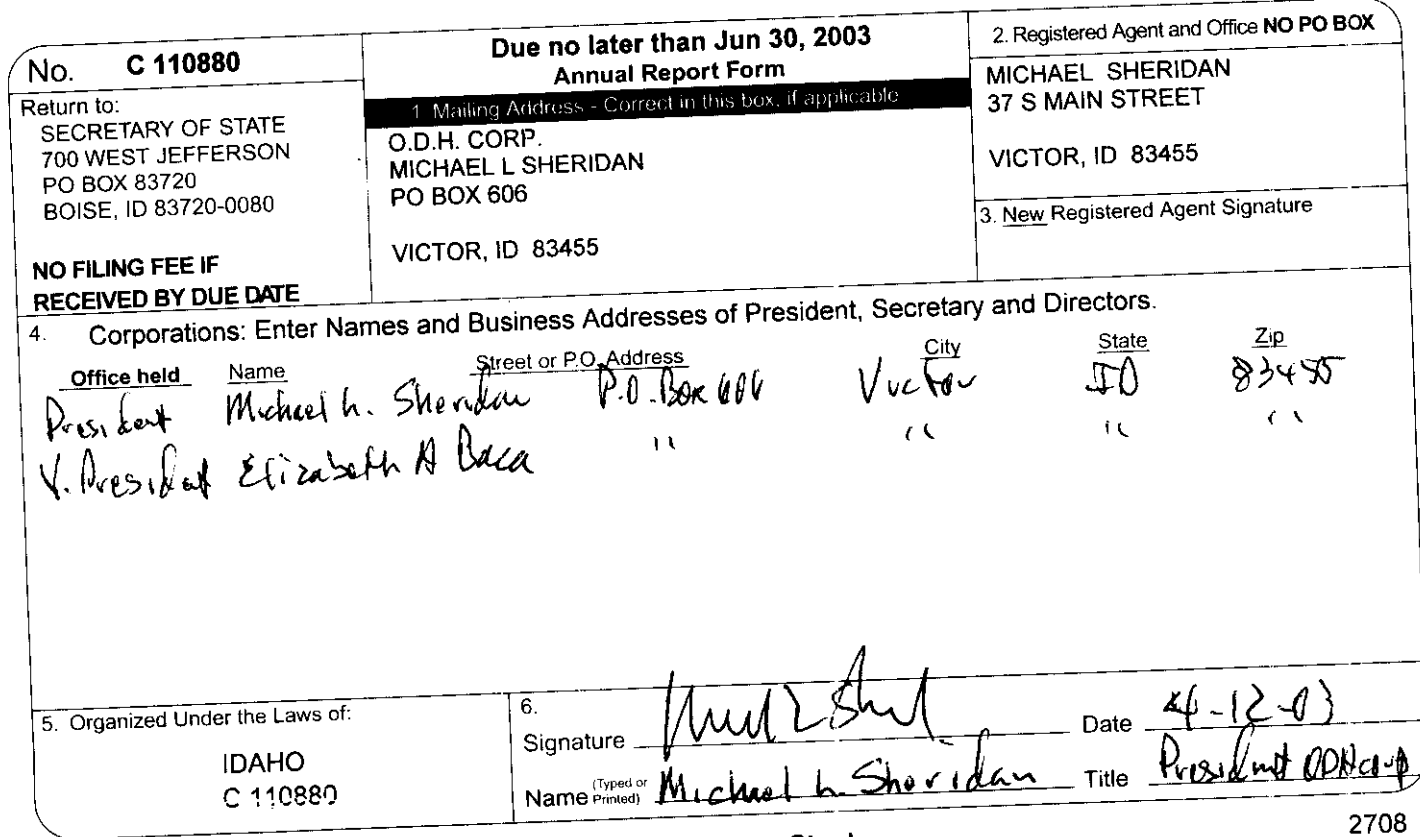 No. C 110880
Return to:
SECRETARY OF STATE
700 WEST JEFFERSON
PO BOX 83720
BOISE, ID 83720-0080
NO FILING FEE IF
RECEIVED BY DUE DATE
Due no later than Jun 30, 2003
Annual Report Form
1 Mailing Address - Correct in this box, if applicable
O.D.H. CORP.
MICHAEL L SHERIDAN
PO BOX 606
VICTOR, ID 83455
2. Registered Agent and Office NO PO BOX
MICHAEL SHERIDAN
37 S MAIN STREET
VICTOR, ID 83455
3. New Registered Agent Signature
4. Corporations: Enter Names and Business Addresses of President, Secretary and Directors.
Office held Name Street or P.O. Address City State Zip
President Michael L. Sheridan P.O. Box 606 Victor ID 83455
V. President Elizabeth A Baca " " " "
5. Organized Under the Laws of:
IDAHO
C 110880
6.
Signature Date 4-12-03
Name (Typed or Printed) Michael L. Sheridan Title President ODH Corp
2708